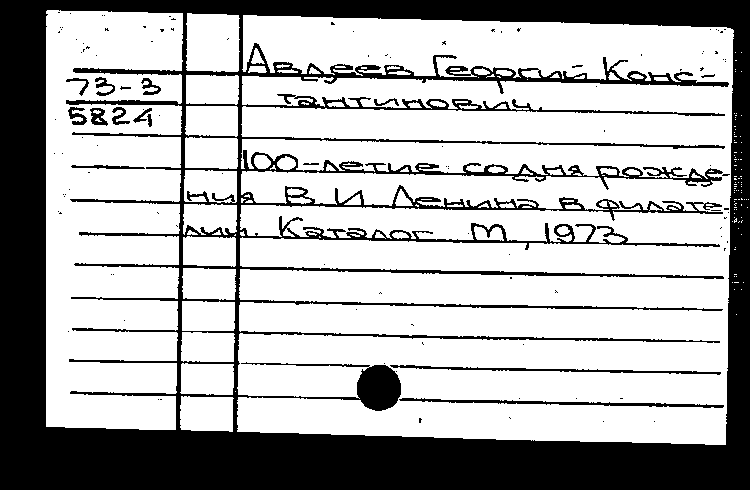 Авдеев, Георгий Конс-
тантинович.
73-3
5824
100-летие со дня рожде-
ния В. И. Ленина в филате-
лии. Каталог М., 1973